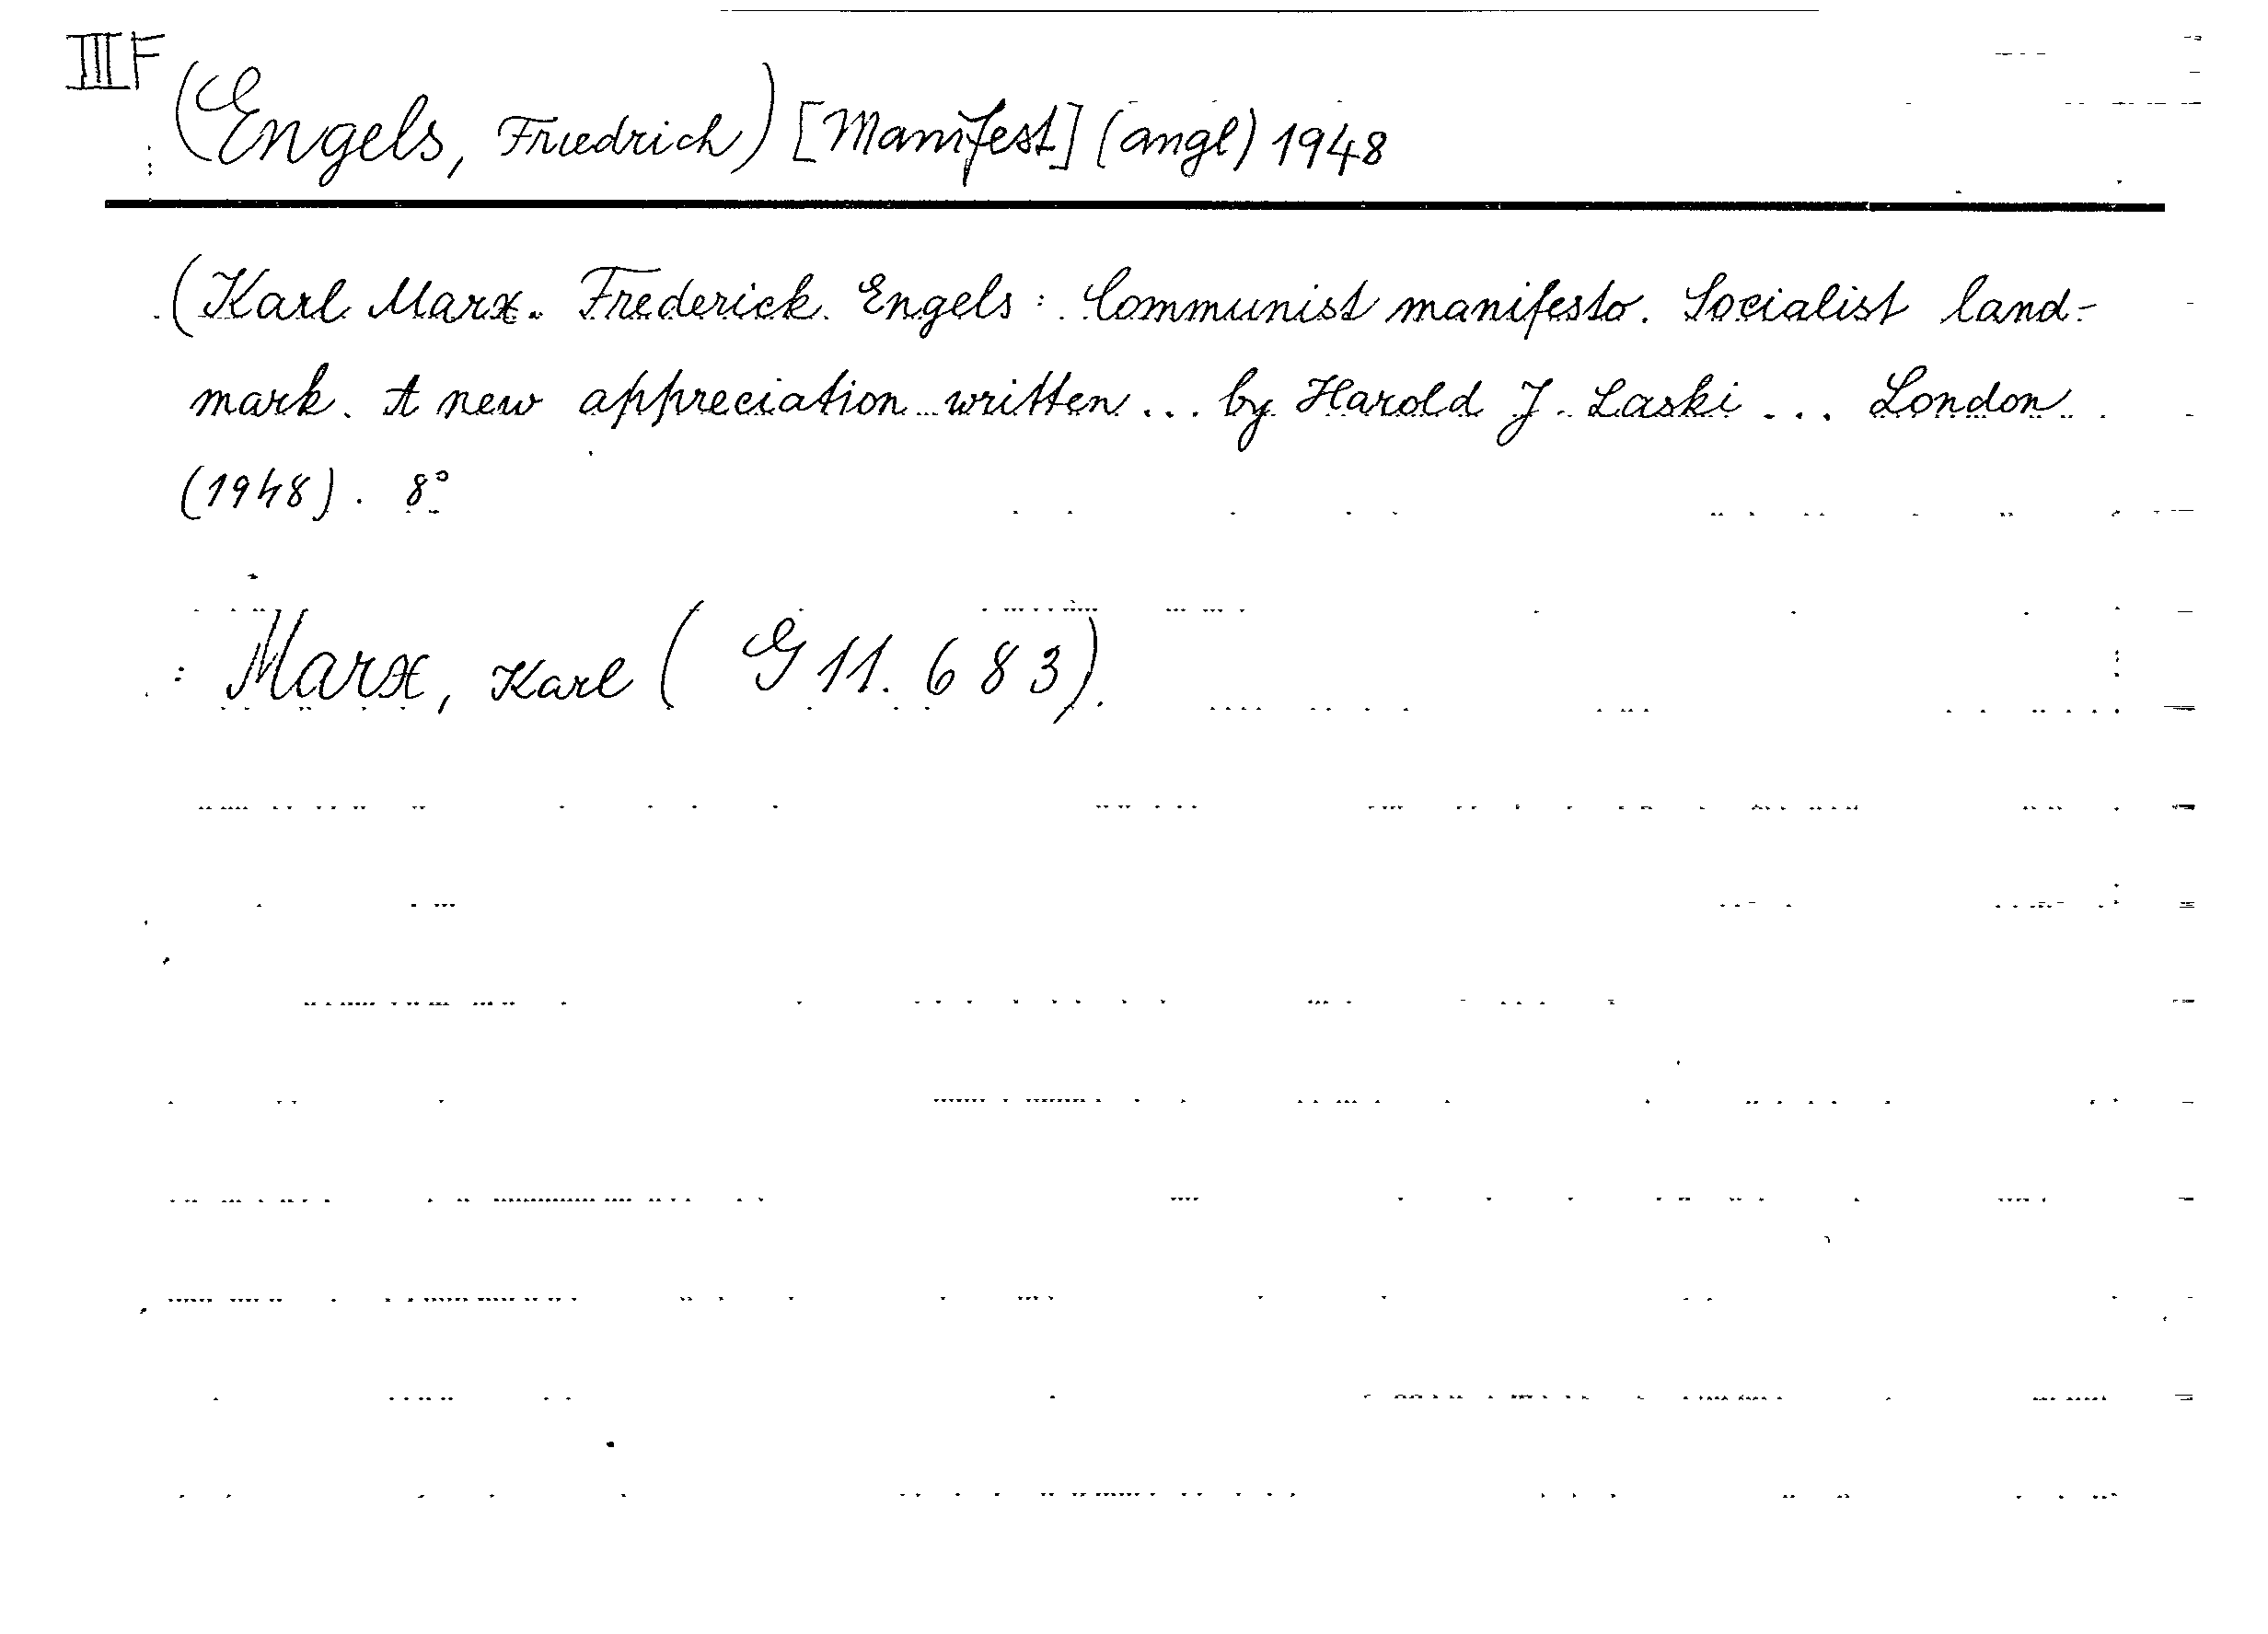 III F
(Engels, Friedrich) [Manifest] (angl) 1948
(Karl Marx. Frederick Engels: Communist manifesto. Socialist land-
mark. A new appreciation written ... by Harold J. Laski ... London
(1948). 8°
: Marx, Karl ( G 11. 683).